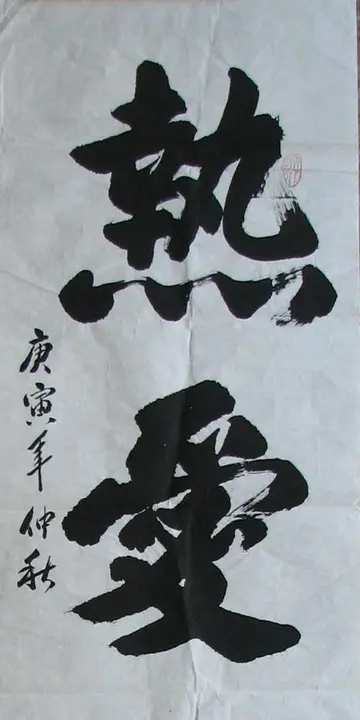 熱愛
庚寅年仲秋